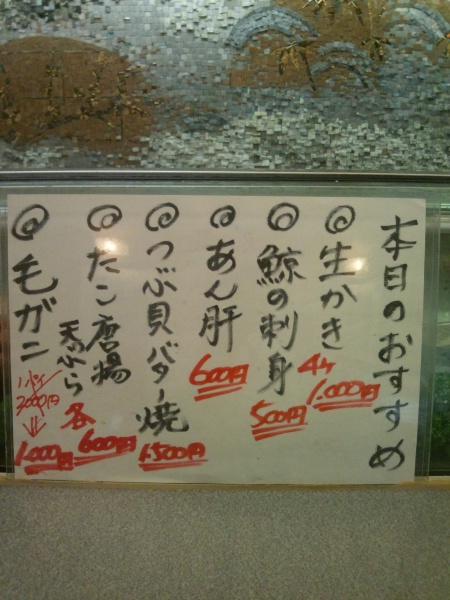 本日のおすすめ
◎生かき 4ケ 1,000円
◎鯨の刺身 500円
◎あん肝 600円
◎つぶ貝バター焼 1,500円
◎たこ唐揚
天ぷら 各600円
◎毛ガニ
2000円
⇓
1,000円